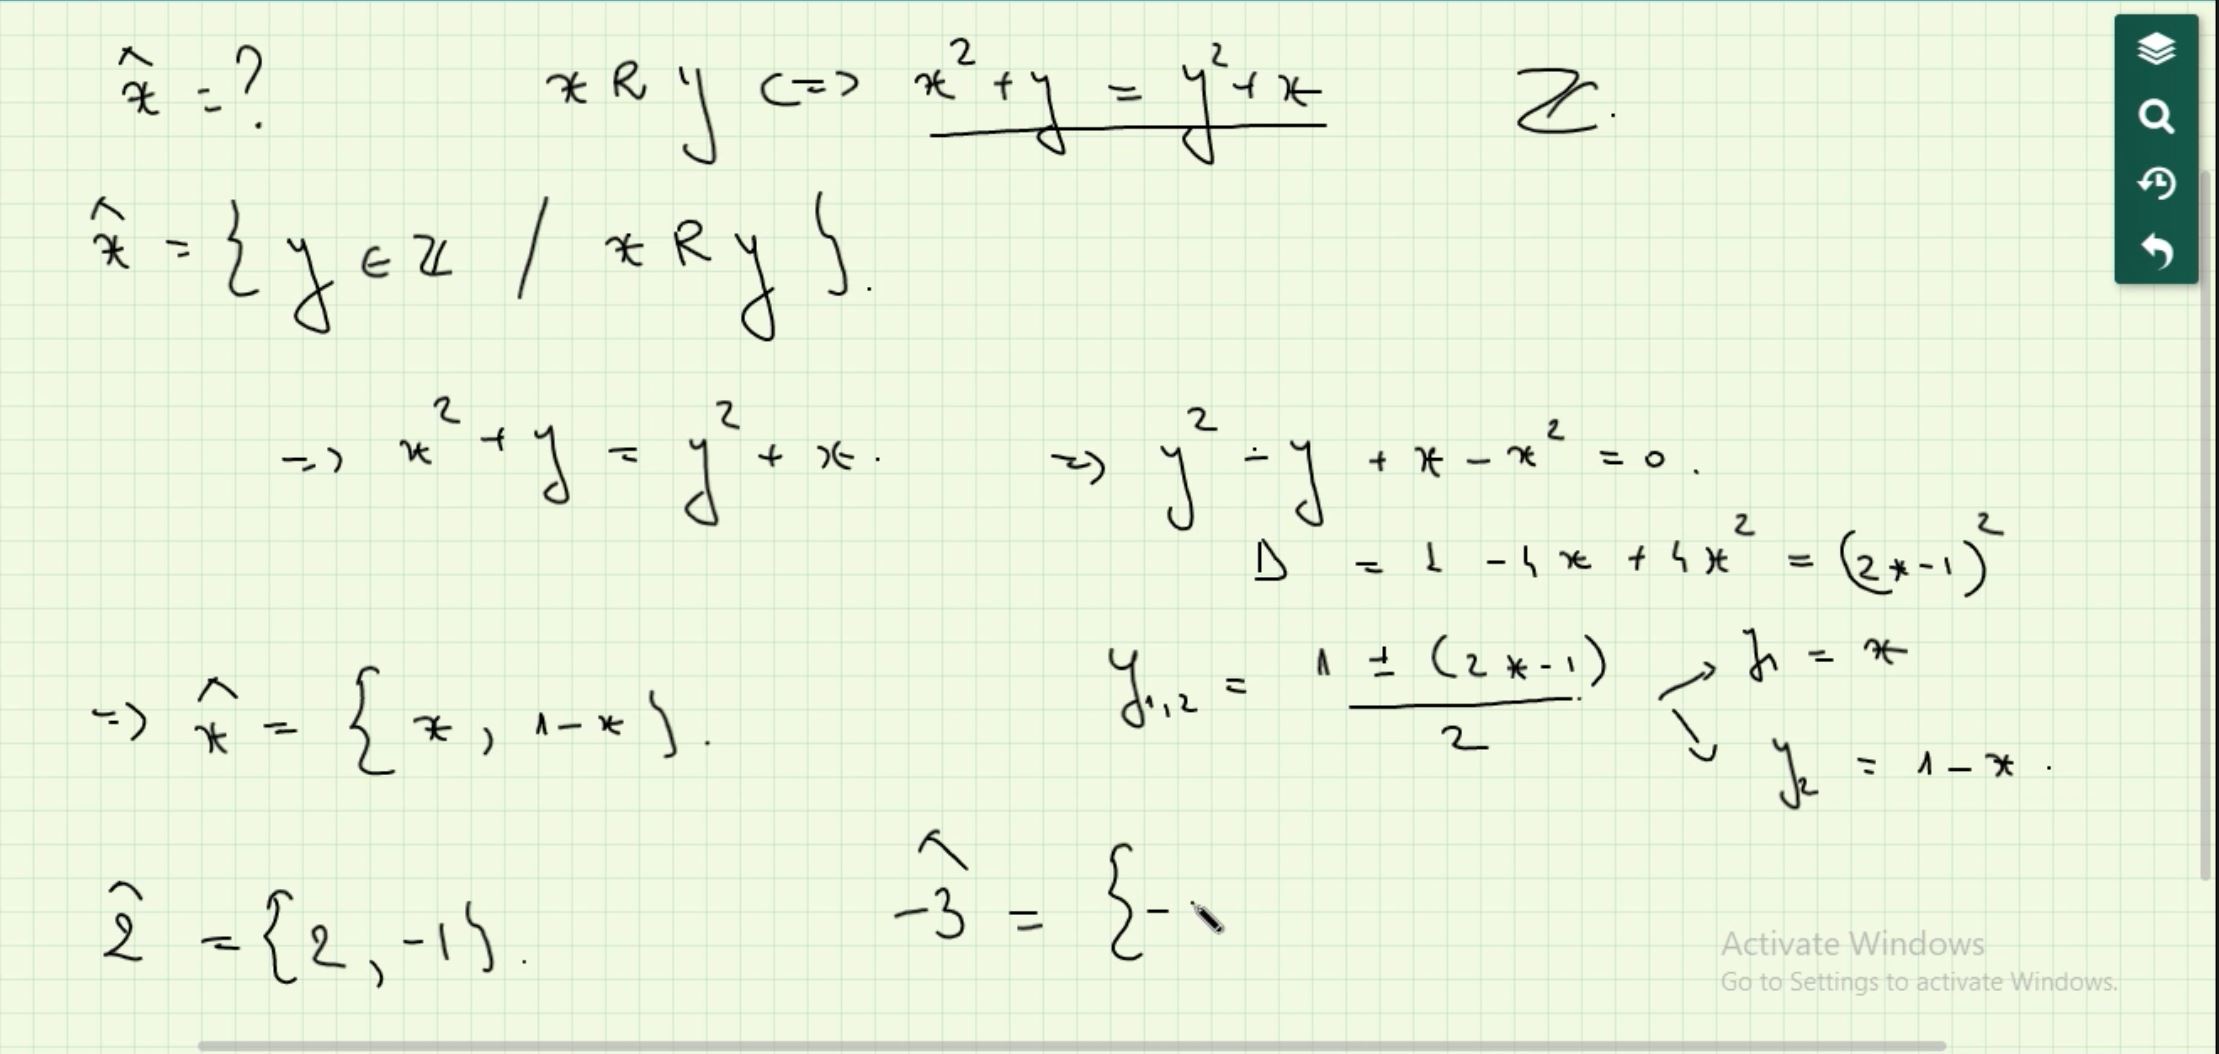 x̂ = ? x R y <=> x² + y = y² + x ℤ.
x̂ = { y ∈ ℤ / x R y }.
=> x² + y = y² + x. => y² - y + x - x² = 0.
Δ = 1 - 4x + 4x² = (2x-1)²
y₁,₂ = (1 ± (2x-1))/2 → y₁ = x
=> x̂ = { x, 1-x }. ↘ y₂ = 1-x.
2̂ = {2, -1}. -3̂ = {-
Activate Windows
Go to Settings to activate Windows.